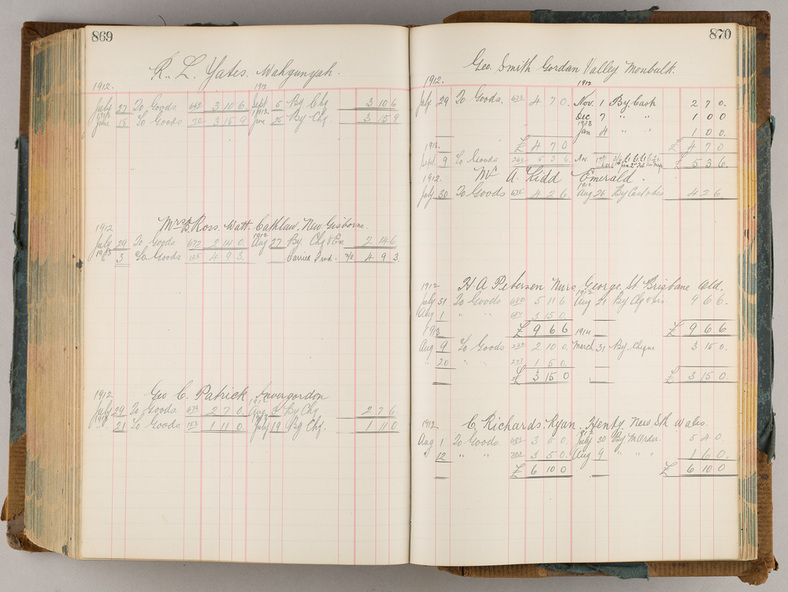 869
R. L. Yates. Wahgunyah.
1912.
July 23 To Goods 3 10 6 Sept 6 By Chq 3 10 6
June 15 To Goods 3 15 9 June 25 By Chq 3 15 9
1912
Mrs Ross. Watt. New Gisborne
July 24 To Goods 637 2 14 6 Aug 27 By Chq & Dis 2 14 6
3 To Goods 4 9 3 Carried Fwd. 4 9 3
1912.
Geo C. Patrick Invergordon
July 29 To Goods 2 7 6 Aug By Chq 2 7 6
21 To Goods 1 1 0 July 19 By Chq. 1 1 0
870
Geo. Smith Gordon Valley Monbulk.
1912.
July 29 To Goods. 4 7 0. Nov. 1 By Cash 2 7 0.
Dec 7 " " 1 0 0
1913
Jan 4 " " 1 0 0.
£ 4 7 0 £ 4 7 0
1913
Sept 9 To Goods 5 3 6 £ 5 3 6.
1912.
Mr A Kidd Emerald.
July 30 To Goods 4 2 6 Aug 26 By Cash & Dis 4 2 6
1912.
H A Petersen Nurs George St Brisbane Qld.
July 31 To Goods 5 11 6 Aug 21 By Chq & Dis 9 6 6.
Aug 1 " " 3 15 0.
£ 9 6 6 £ 9 6 6
1913 1914
Aug 9 To Goods 2 10 0. March 31 By Cheque 3 15 0.
" 20 " " 1 5 0.
£ 3 15 0 £ 3 15 0.
1912.
C. Richards. Ryan. Henty. New Sth Wales.
Aug 1 To Goods 652 3 5 0. July 30 By M Order 5 4 0
" 12 " " 3 5 0. Aug 9 " " " 1 6 0.
£ 6 10 0 £ 6 10 0